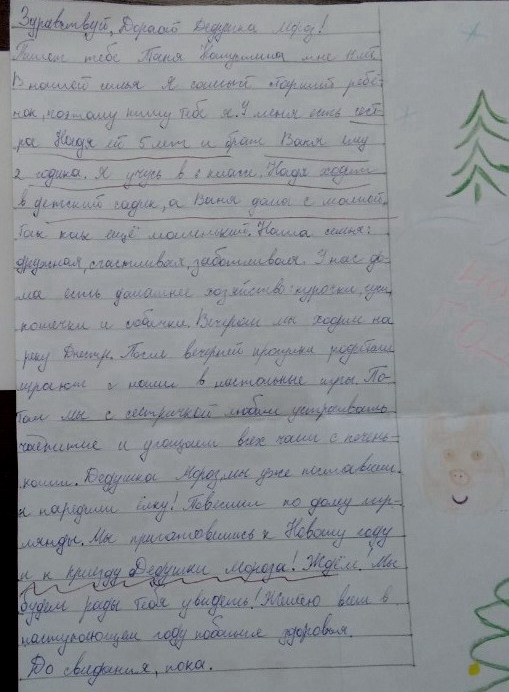 Здравствуй, Дорогой Дедушка Мороз!
Пишет тебе Таня мне лет
В нашей семье Я самый старший ребё-
нок, поэтому пишу тебе я. У меня есть сест-
ра Надя ей 5 лет и брат Ваня ему
2 годика. Я учусь в классе. Надя ходит
в детский садик, а Ваня дома с мамой.
Так как ещё маленький. Наша семья:
дружная, счастливая, заботливая. У нас до-
ма есть домашнее хозяйство: курочки, гуси,
кошечки и собачки. Вечером мы ходим на
реку Днестр. После вечерней прогулки родители
играют с нами в настольные игры. По-
том мы с сестричкой любим устраивать
чаепитие и угощаем всех чаем с печень-
ками. Дедушка Мороз, мы уже поставили
и нарядили ёлку! Повесили по дому гир-
лянды. Мы приготовились к Новому году
и к приезду Дедушки Мороза! Ждём. Мы
будем рады тебя увидеть! Желаю всем в
наступающем году побольше здоровья.
До свидания, пока.